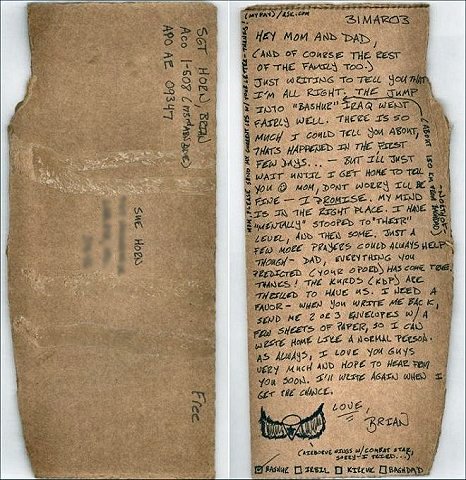 SGT HORN BRIAN
ACO 1-508 (INF)(ABN)(BDE)
APO AE 09347
SUE HORN
Free
(MYPAY)/ASC.COM
31MAR03
HEY MOM AND DAD,
(AND OF COURSE THE REST
OF THE FAMILY TOO.)
JUST WRITING TO TELL YOU THAT
I'M ALL RIGHT. THE JUMP
INTO "BASHUR" IRAQ WENT
FAIRLY WELL. THERE IS SO
MUCH I COULD TELL YOU ABOUT,
THATS HAPPENED IN THE FIRST
FEW DAYS... - BUT ILL JUST
WAIT UNTIL I GET HOME TO TELL
YOU ☺ MOM, DONT WORRY ILL BE
FINE - I PROMISE. MY MIND
IS IN THE RIGHT PLACE. I HAVE
"MENTALLY" STOOPED TO "THEIR"
LEVEL, AND THEN SOME. JUST A
FEW MORE PRAYERS COULD ALWAYS HELP
THOUGH - DAD, EVERYTHING YOU
PREDICTED (YOUR OPORD) HAS COME TRUE,
THANKS! THE KURDS (KDP) ARE
THRILLED TO HAVE US. I NEED A
FAVOR - WHEN YOU WRITE ME BACK,
SEND ME 2 OR 3 ENVELOPES W/ A
FEW SHEETS OF PAPER, SO I CAN
WRITE HOME LIKE A NORMAL PERSON.
AS ALWAYS, I LOVE YOU GUYS
VERY MUCH AND HOPE TO HEAR FROM
YOU SOON. I'LL WRITE AGAIN WHEN I
GET THE CHANCE.
LOVE,
BRIAN
(AIRBORNE WINGS W/COMBAT STAR,
SORRY-I TRIED...)
BASHUR IRBIL KIRKUK BAGHDAD
(ABOUT 150 KM FROM BAGHDAD)
-NORTH OF